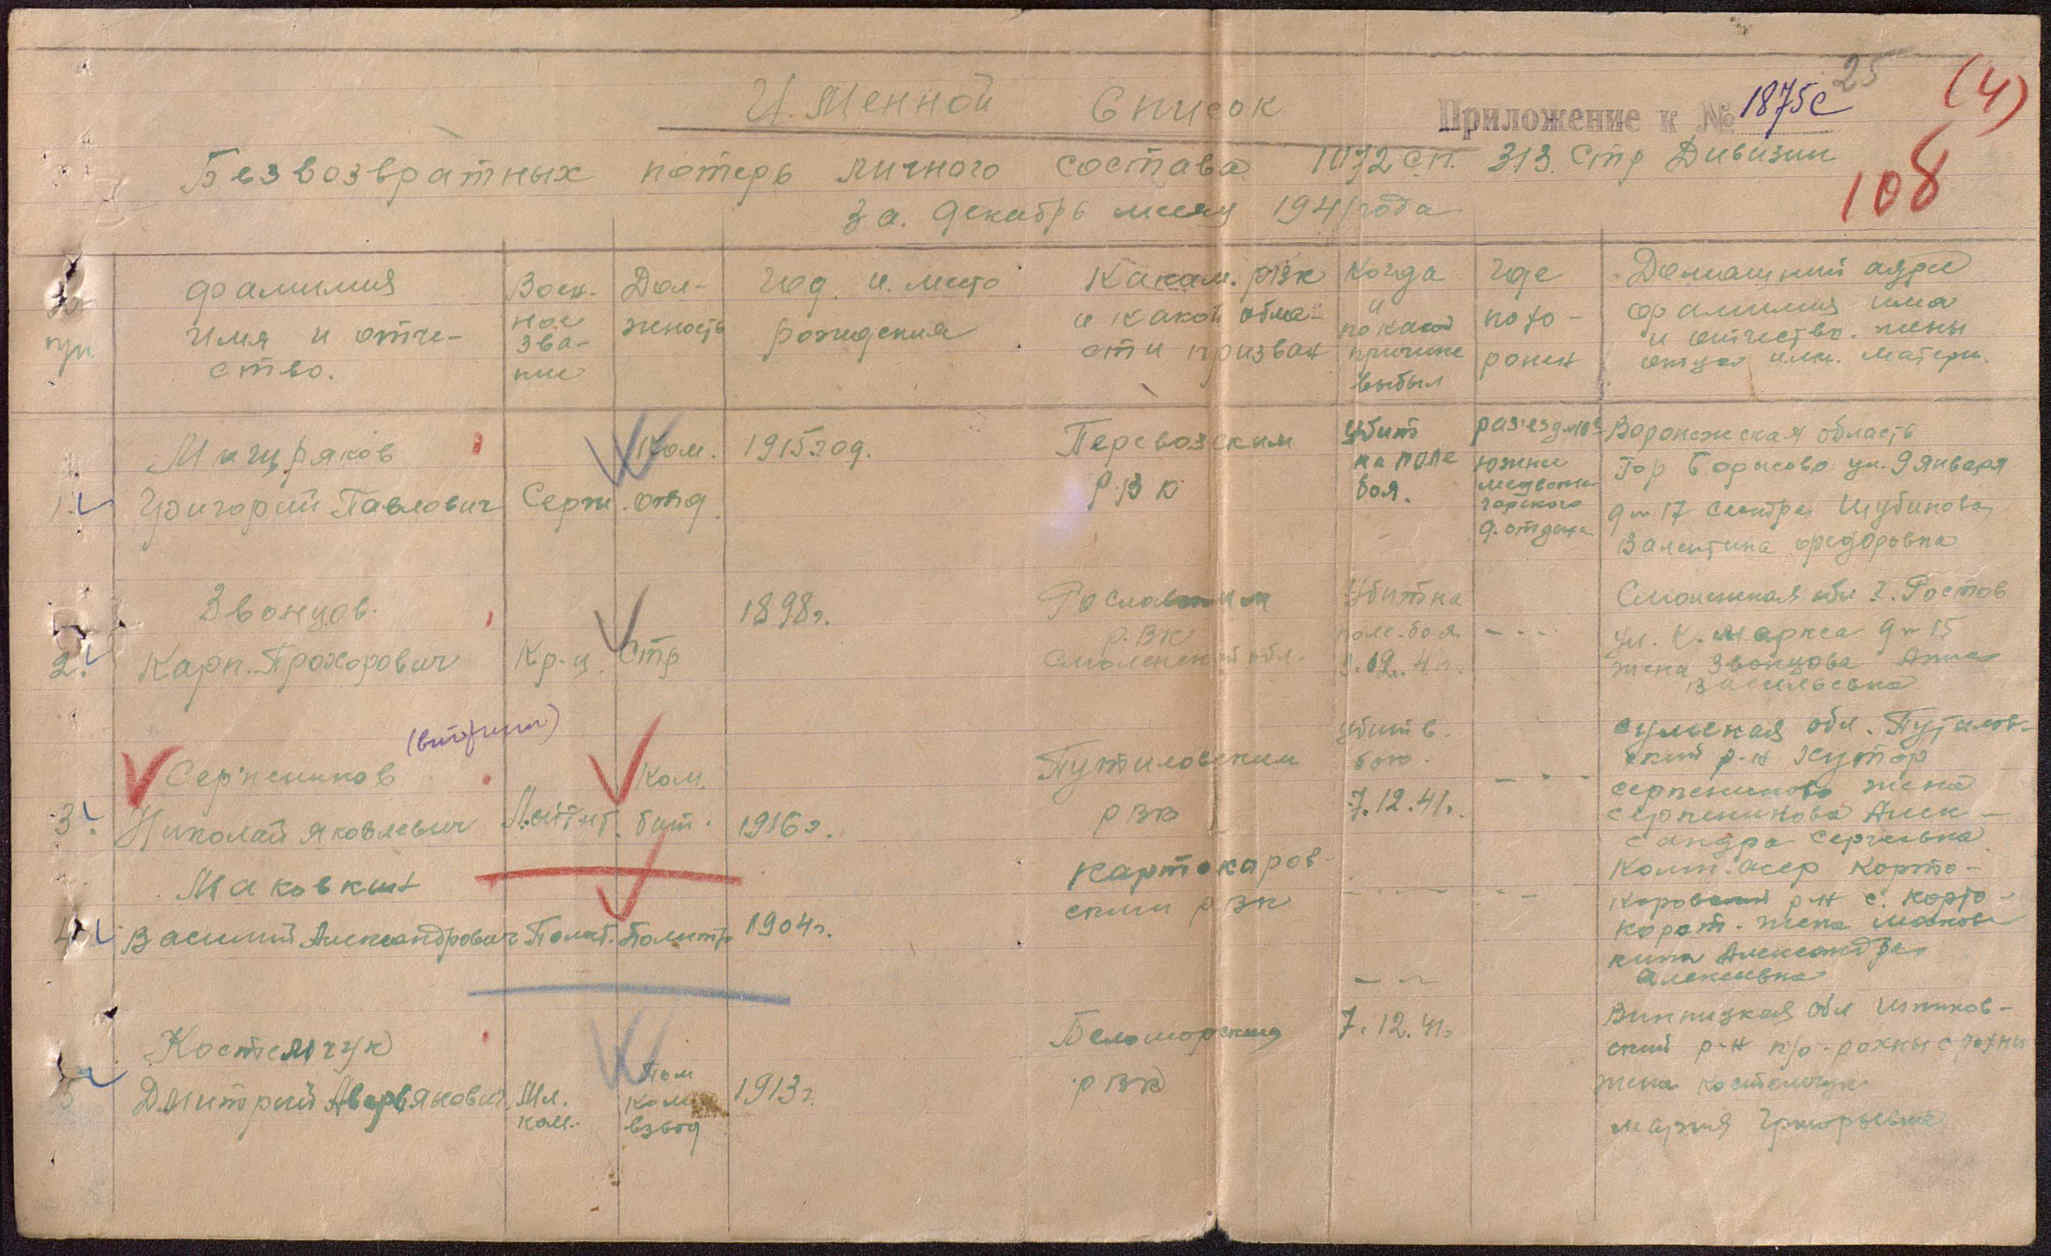 25
(4)
Именной Список
Приложение к № 1875с
108
Безвозвратных потерь личного состава 1072 с.п. 313 Стр Дивизии
За декабрь месяц 1941 года
Фамилия
Имя и отче-
ство.
Воен-
ное
зва-
ние
Дол-
жность
Год и место
рождения
Каким РВК
и какой обла-
сти призван
Когда
и
по какой
причине
выбыл
Где
похо-
ронен
Домашний адрес
фамилия имя
и отчество жены
отца или матери.
1.
Мищряков
Григорий Павлович
Серж.
Ком.
отд.
1915 год.
Перевозским
РВК
Убит
на поле
боя.
раз'езд
южнее
д. отдыха
Воронежская область
Гор Борисово ул. 9 Января
д № 17 сестра Шубинова
Валентина Федоровна
2.
Звонцов
Карп Прохорович
Кр-ц
Стр
1898г.
Рославским
РВК
Смоленской обл.
Убит на
поле боя
12.41г.
Смоленская обл г. Ростов
ул. К. Маркса д № 15
жена Звонцова Анна
Васильевна
3.
Серпенинов
Николай Яковлевич
Ком.
бат.
1916г.
Путиловским
РВК
убит в
бою.
7.12.41г.
Сумская обл. Путилов-
ский р-н Хутор
серпениново жена
серпенинова Алек-
сандра Сергеевна
4.
Маковкин
Василий Александрович
Полит.
Политр
1904г.
Картокаров-
ским РВК
Коми.асср Корто-
каровский р-н с. Корто-
карот. жена Маков-
кина Александра
Алексеевна
5
Костемчук
Дмитрий Аверьянович
Мл.
ком.
Пом
ком
взвод
1913г.
Беломорским
РВК
7.12.41г
Винницкая обл Шпиков-
ский р-н п/о рахны с рахны
жена Костемчук
Мария Григорьевна